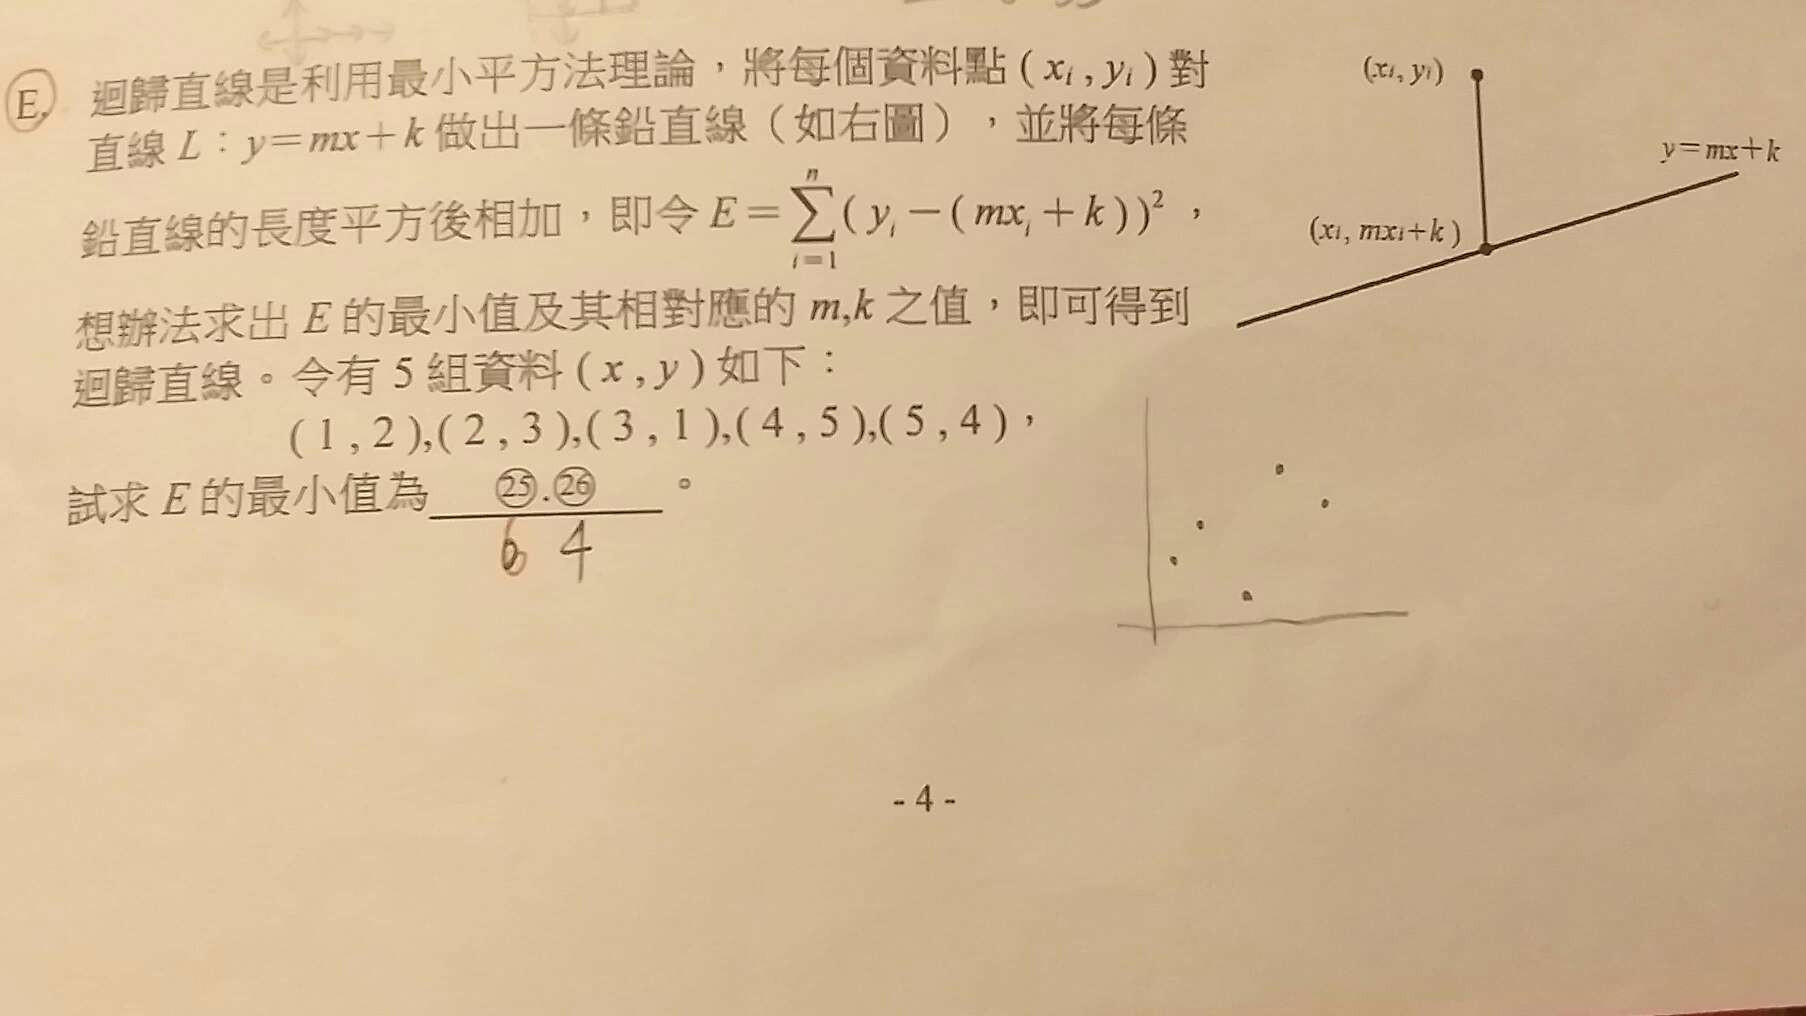 E. 迴歸直線是利用最小平方法理論，將每個資料點 ( xᵢ , yᵢ ) 對
直線 L：y＝mx＋k 做出一條鉛直線（如右圖），並將每條
鉛直線的長度平方後相加，即令 E＝∑ⁿᵢ₌₁( yᵢ －( mxᵢ ＋k ))²，
想辦法求出 E 的最小值及其相對應的 m,k 之值，即可得到
迴歸直線。令有 5 組資料 ( x , y ) 如下：
( 1 , 2 ),( 2 , 3 ),( 3 , 1 ),( 4 , 5 ),( 5 , 4 )，
試求 E 的最小值為 ㉕.㉖ 。
6 4
(xᵢ, yᵢ)
y＝mx＋k
(xᵢ, mxᵢ+k )
- 4 -